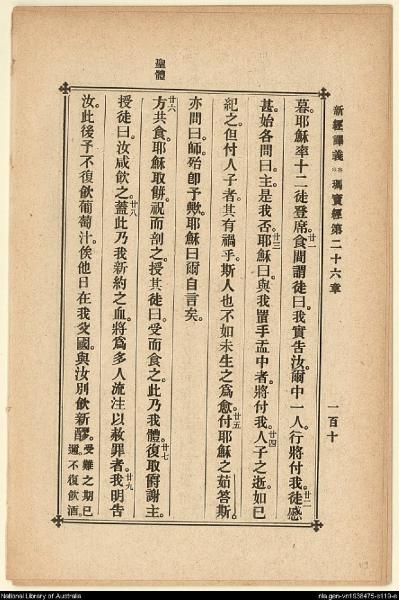 新經譯義 瑪竇經第二十六章 一百十
聖體
暮。耶穌率十二徒登席。廿一食間謂徒曰。我實告汝。爾中一人。行將付我。廿二徒感
甚。始各問曰。主。是我否。廿三耶穌曰。與我置手盂中者。將付我。廿四人子之逝。如已
紀之。但付人子者。其有禍乎。斯人也不如未生之為愈。廿五付耶穌之茹答斯。
亦問曰。師。殆卽予歟。耶穌曰。爾自言矣。
廿六方共食。耶穌取餅。祝而剖之。授其徒曰。受而食之。此乃我體。廿七復取爵謝主。
授徒曰。汝咸飮之。廿八蓋此乃我新約之血。將爲多人流注以赦罪者。廿九我明告
汝。此後予不復飮葡萄汁。俟他日在我父國。與汝別飮新醪。受難之期已
邇。不復飮酒。
National Library of Australia
nla.gen-vn1938475-s119-e